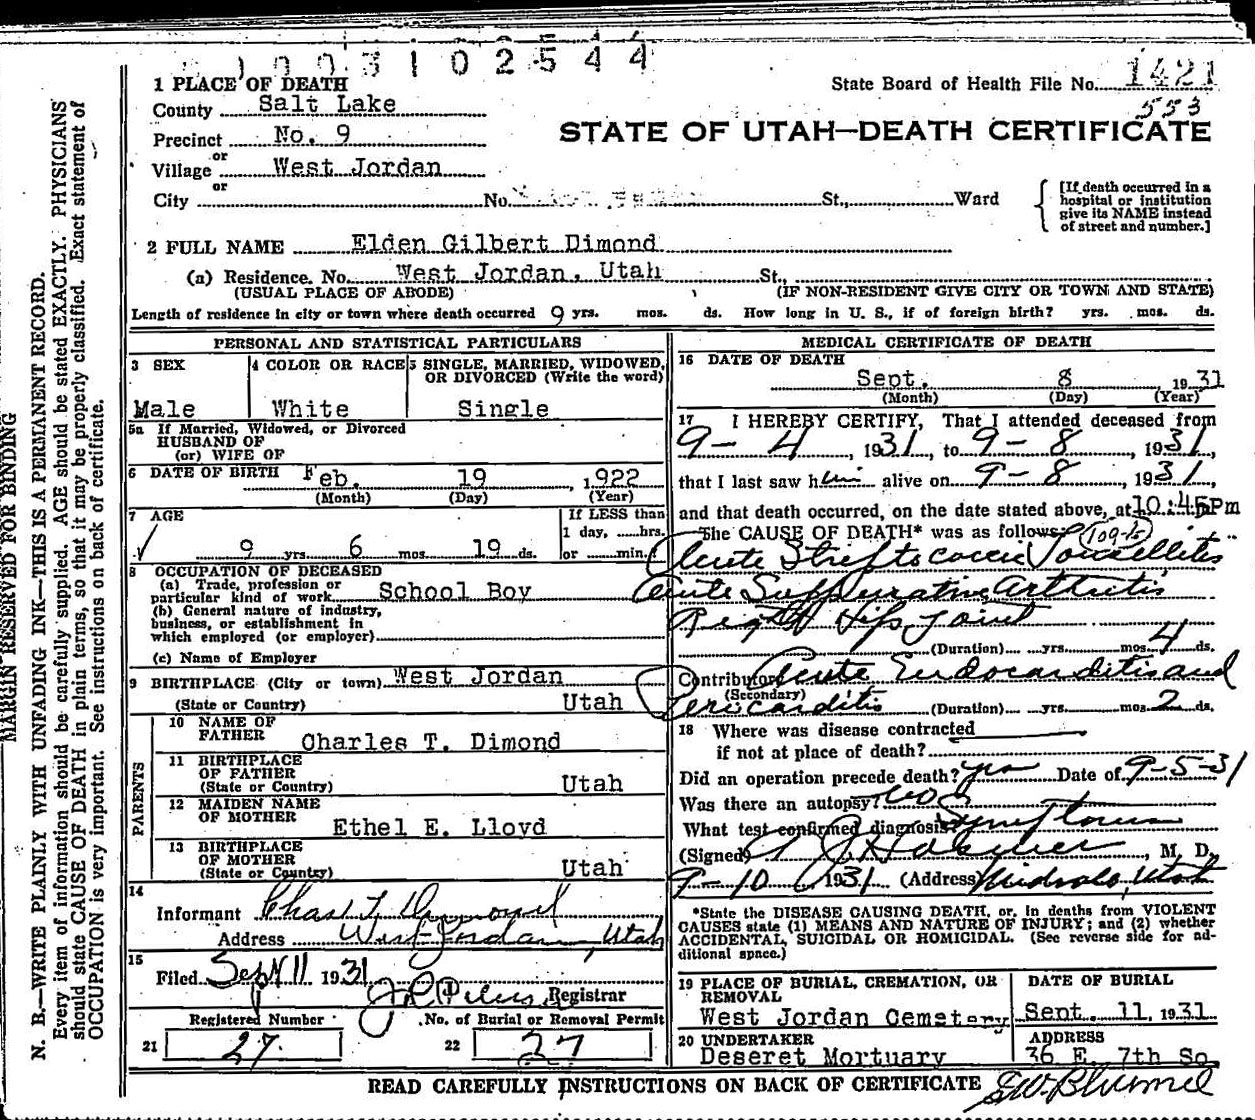 1003102544
1 PLACE OF DEATH
State Board of Health File No. 1421
553
County Salt Lake
STATE OF UTAH—DEATH CERTIFICATE
Precinct No. 9
or
Village West Jordan
or
City No. St., Ward
[If death occurred in a
hospital or institution
give its NAME instead
of street and number.]
2 FULL NAME Elden Gilbert Dimond
(a) Residence. No. West Jordan, Utah St.,
(USUAL PLACE OF ABODE) (IF NON-RESIDENT GIVE CITY OR TOWN AND STATE)
Length of residence in city or town where death occurred 9 yrs. mos. ds. How long in U. S., if of foreign birth? yrs. mos. ds.
PERSONAL AND STATISTICAL PARTICULARS
3 SEX
Male
4 COLOR OR RACE
White
5 SINGLE, MARRIED, WIDOWED,
OR DIVORCED (Write the word)
Single
5a If Married, Widowed, or Divorced
HUSBAND OF
(or) WIFE OF
6 DATE OF BIRTH Feb. 19 , 1922
(Month) (Day) (Year)
7 AGE
9 yrs. 6 mos. 19 ds.
If LESS than
1 day, hrs.
or min.
8 OCCUPATION OF DECEASED
(a) Trade, profession or
particular kind of work School Boy
(b) General nature of industry,
business, or establishment in
which employed (or employer)
(c) Name of Employer
9 BIRTHPLACE (City or town) West Jordan
(State or Country) Utah
PARENTS
10 NAME OF
FATHER Charles T. Dimond
11 BIRTHPLACE
OF FATHER
(State or Country) Utah
12 MAIDEN NAME
OF MOTHER Ethel E. Lloyd
13 BIRTHPLACE
OF MOTHER
(State or Country) Utah
14
Informant Chas T Dimond
Address West Jordan, Utah
15
Filed Sept 11 1931
Registrar
Registered Number No. of Burial or Removal Permit
21 27 22 27
MEDICAL CERTIFICATE OF DEATH
16 DATE OF DEATH
Sept. 8 1931
(Month) (Day) (Year)
17 I HEREBY CERTIFY, That I attended deceased from
9-4, 1931, to 9-8, 1931,
that I last saw him alive on 9-8, 1931,
and that death occurred, on the date stated above, at 10:45Pm
The CAUSE OF DEATH* was as follows:
Acute Streptococcic Tonsellitis
Acute Suppurative Arthritis
Right Hip Joint
(Duration) yrs. mos. 4 ds.
Contributory Acute Endocarditis and
(Secondary)
Pericarditis (Duration) yrs. mos. 2 ds.
18 Where was disease contracted
if not at place of death?
Did an operation precede death? yes Date of 9-5-31
Was there an autopsy? no
What test confirmed diagnosis? Symptoms
(Signed) , M. D.
9-10 1931 (Address) Midvale, Utah
*State the DISEASE CAUSING DEATH, or, in deaths from VIOLENT
CAUSES state (1) MEANS AND NATURE OF INJURY; and (2) whether
ACCIDENTAL, SUICIDAL OR HOMICIDAL. (See reverse side for ad-
ditional space.)
19 PLACE OF BURIAL, CREMATION, OR
REMOVAL
West Jordan Cemetery
DATE OF BURIAL
Sept. 11, 1931
20 UNDERTAKER
Deseret Mortuary
ADDRESS
36 E. 7th So.
READ CAREFULLY INSTRUCTIONS ON BACK OF CERTIFICATE
MARGIN RESERVED FOR BINDING
N. B.—WRITE PLAINLY WITH UNFADING INK—THIS IS A PERMANENT RECORD.
Every item of information should be carefully supplied. AGE should be stated EXACTLY. PHYSICIANS
should state CAUSE OF DEATH in plain terms, so that it may be properly classified. Exact statement of
OCCUPATION is very important. See instructions on back of certificate.